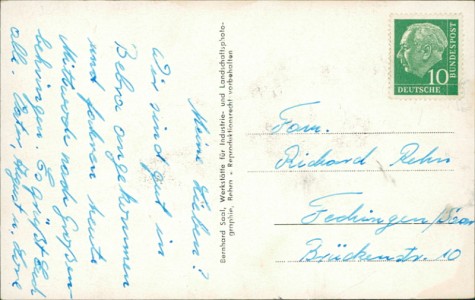 Meine Lieben!
Wir sind gut in
Bebra angekommen
und fahren heute
Mittwoch nach Großen
Es grüßt Euch
all. Vater,
Bernhard Saal, Werkstätte für Industrie- und Landschaftsphoto-
graphie, Rehen • Reproduktionsrecht vorbehalten
10
DEUTSCHE
BUNDESPOST
Fam.
Richard Rehn
Fechingen/Saar
Brückenstr. 10